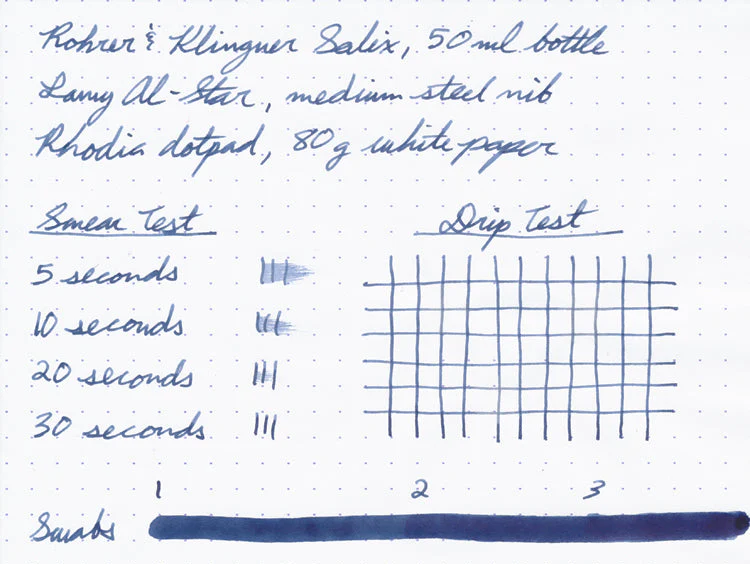 Rohrer & Klingner Salix, 50 ml bottle
Lamy Al-Star, medium steel nib
Rhodia dotpad, 80g white paper
Smear Test
Drip Test
5 seconds
10 seconds
20 seconds
30 seconds
1 2 3
Swabs